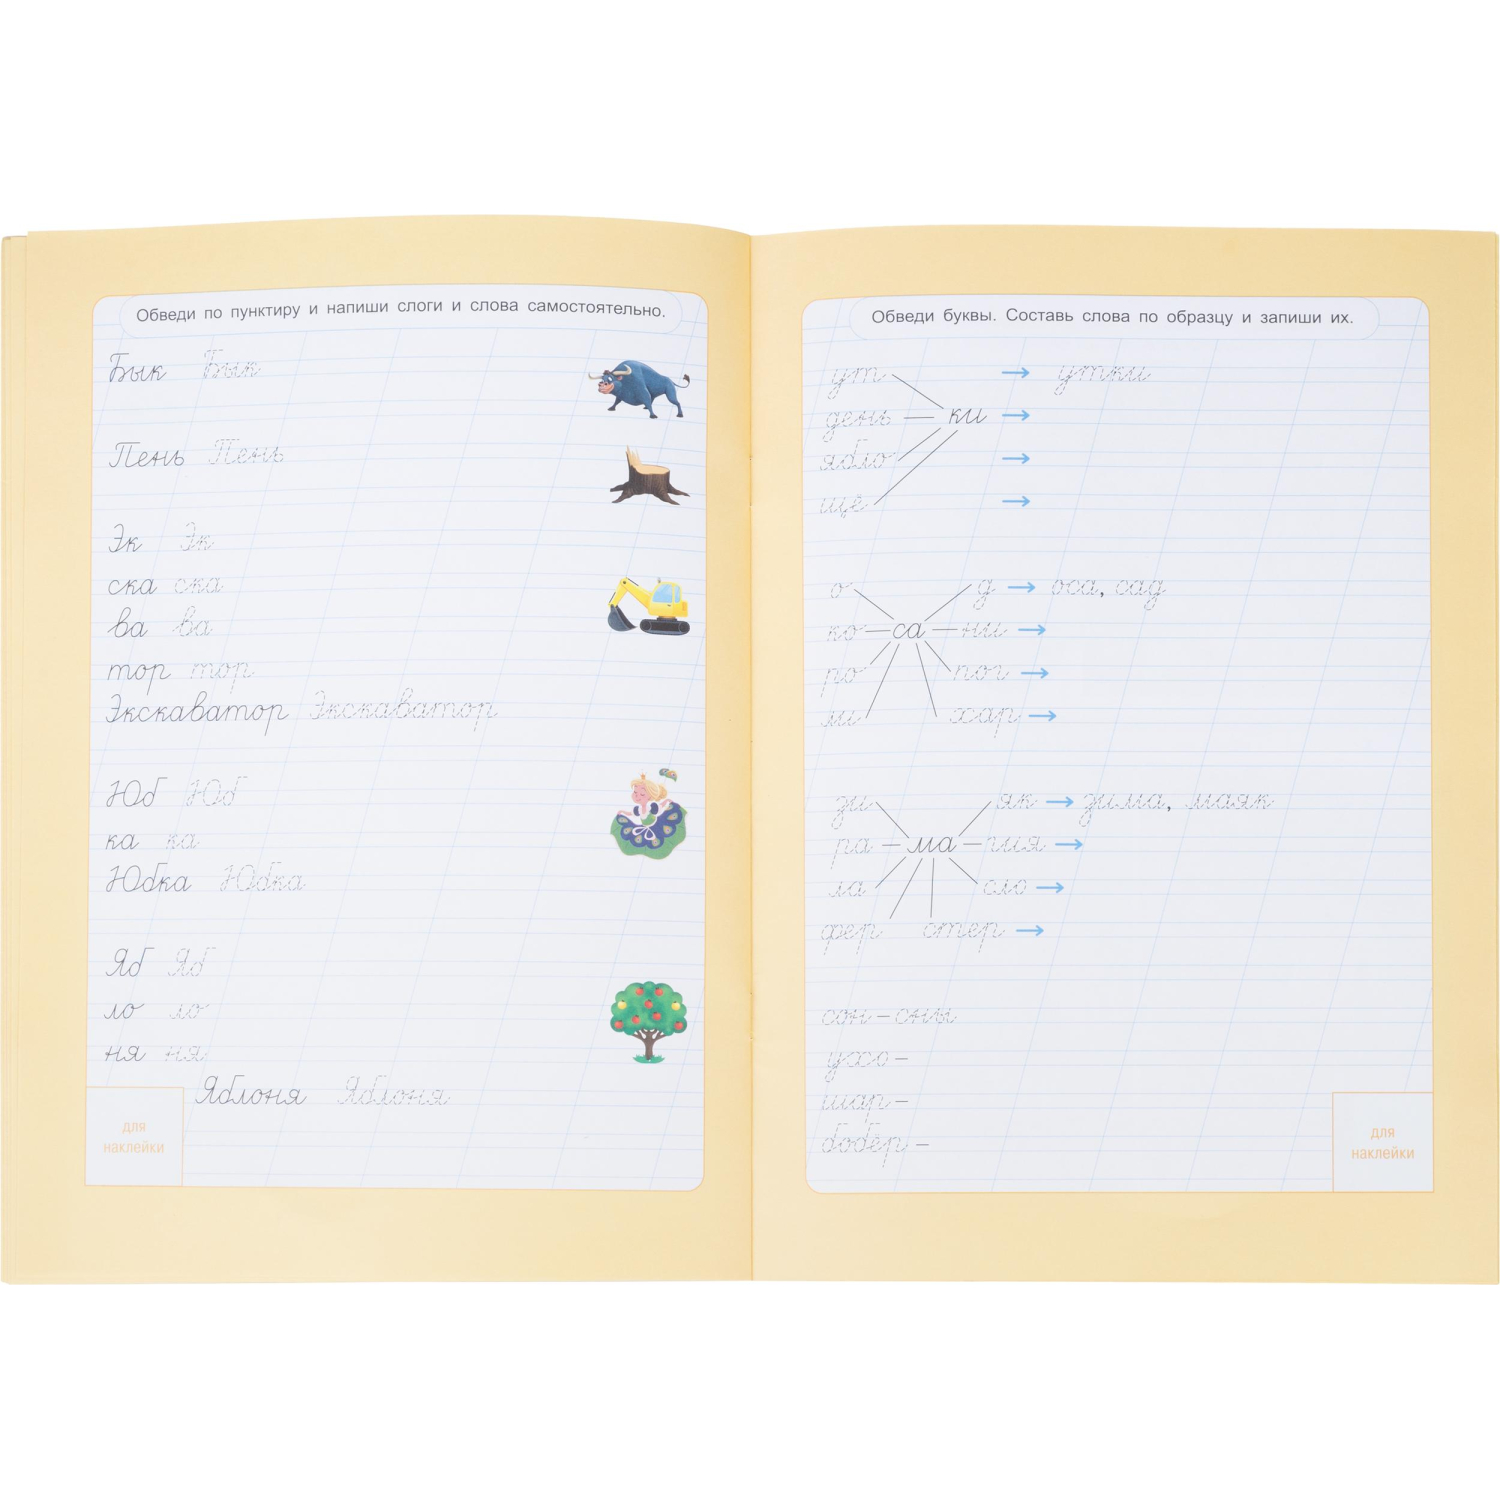 Обведи по пунктиру и напиши слоги и слова самостоятельно.
Бык Бык
Пень Пень
Эк Эк
ска ска
ва ва
тор тор
Экскаватор Экскаватор
Юб Юб
ка ка
Юбка Юбка
Яб Яб
ло ло
ня ня
Яблоня Яблоня
для
наклейки
Обведи буквы. Составь слова по образцу и запиши их.
ут → утки
день — ки →
ябло →
щё →
о д → оса, сад
ко — са — ни →
ро пог →
ми хар →
зи як → зима, маяк
ра — ма — гия →
ла сло →
фер стер →
сон – сны
ухо –
шар –
бобёр –
для
наклейки